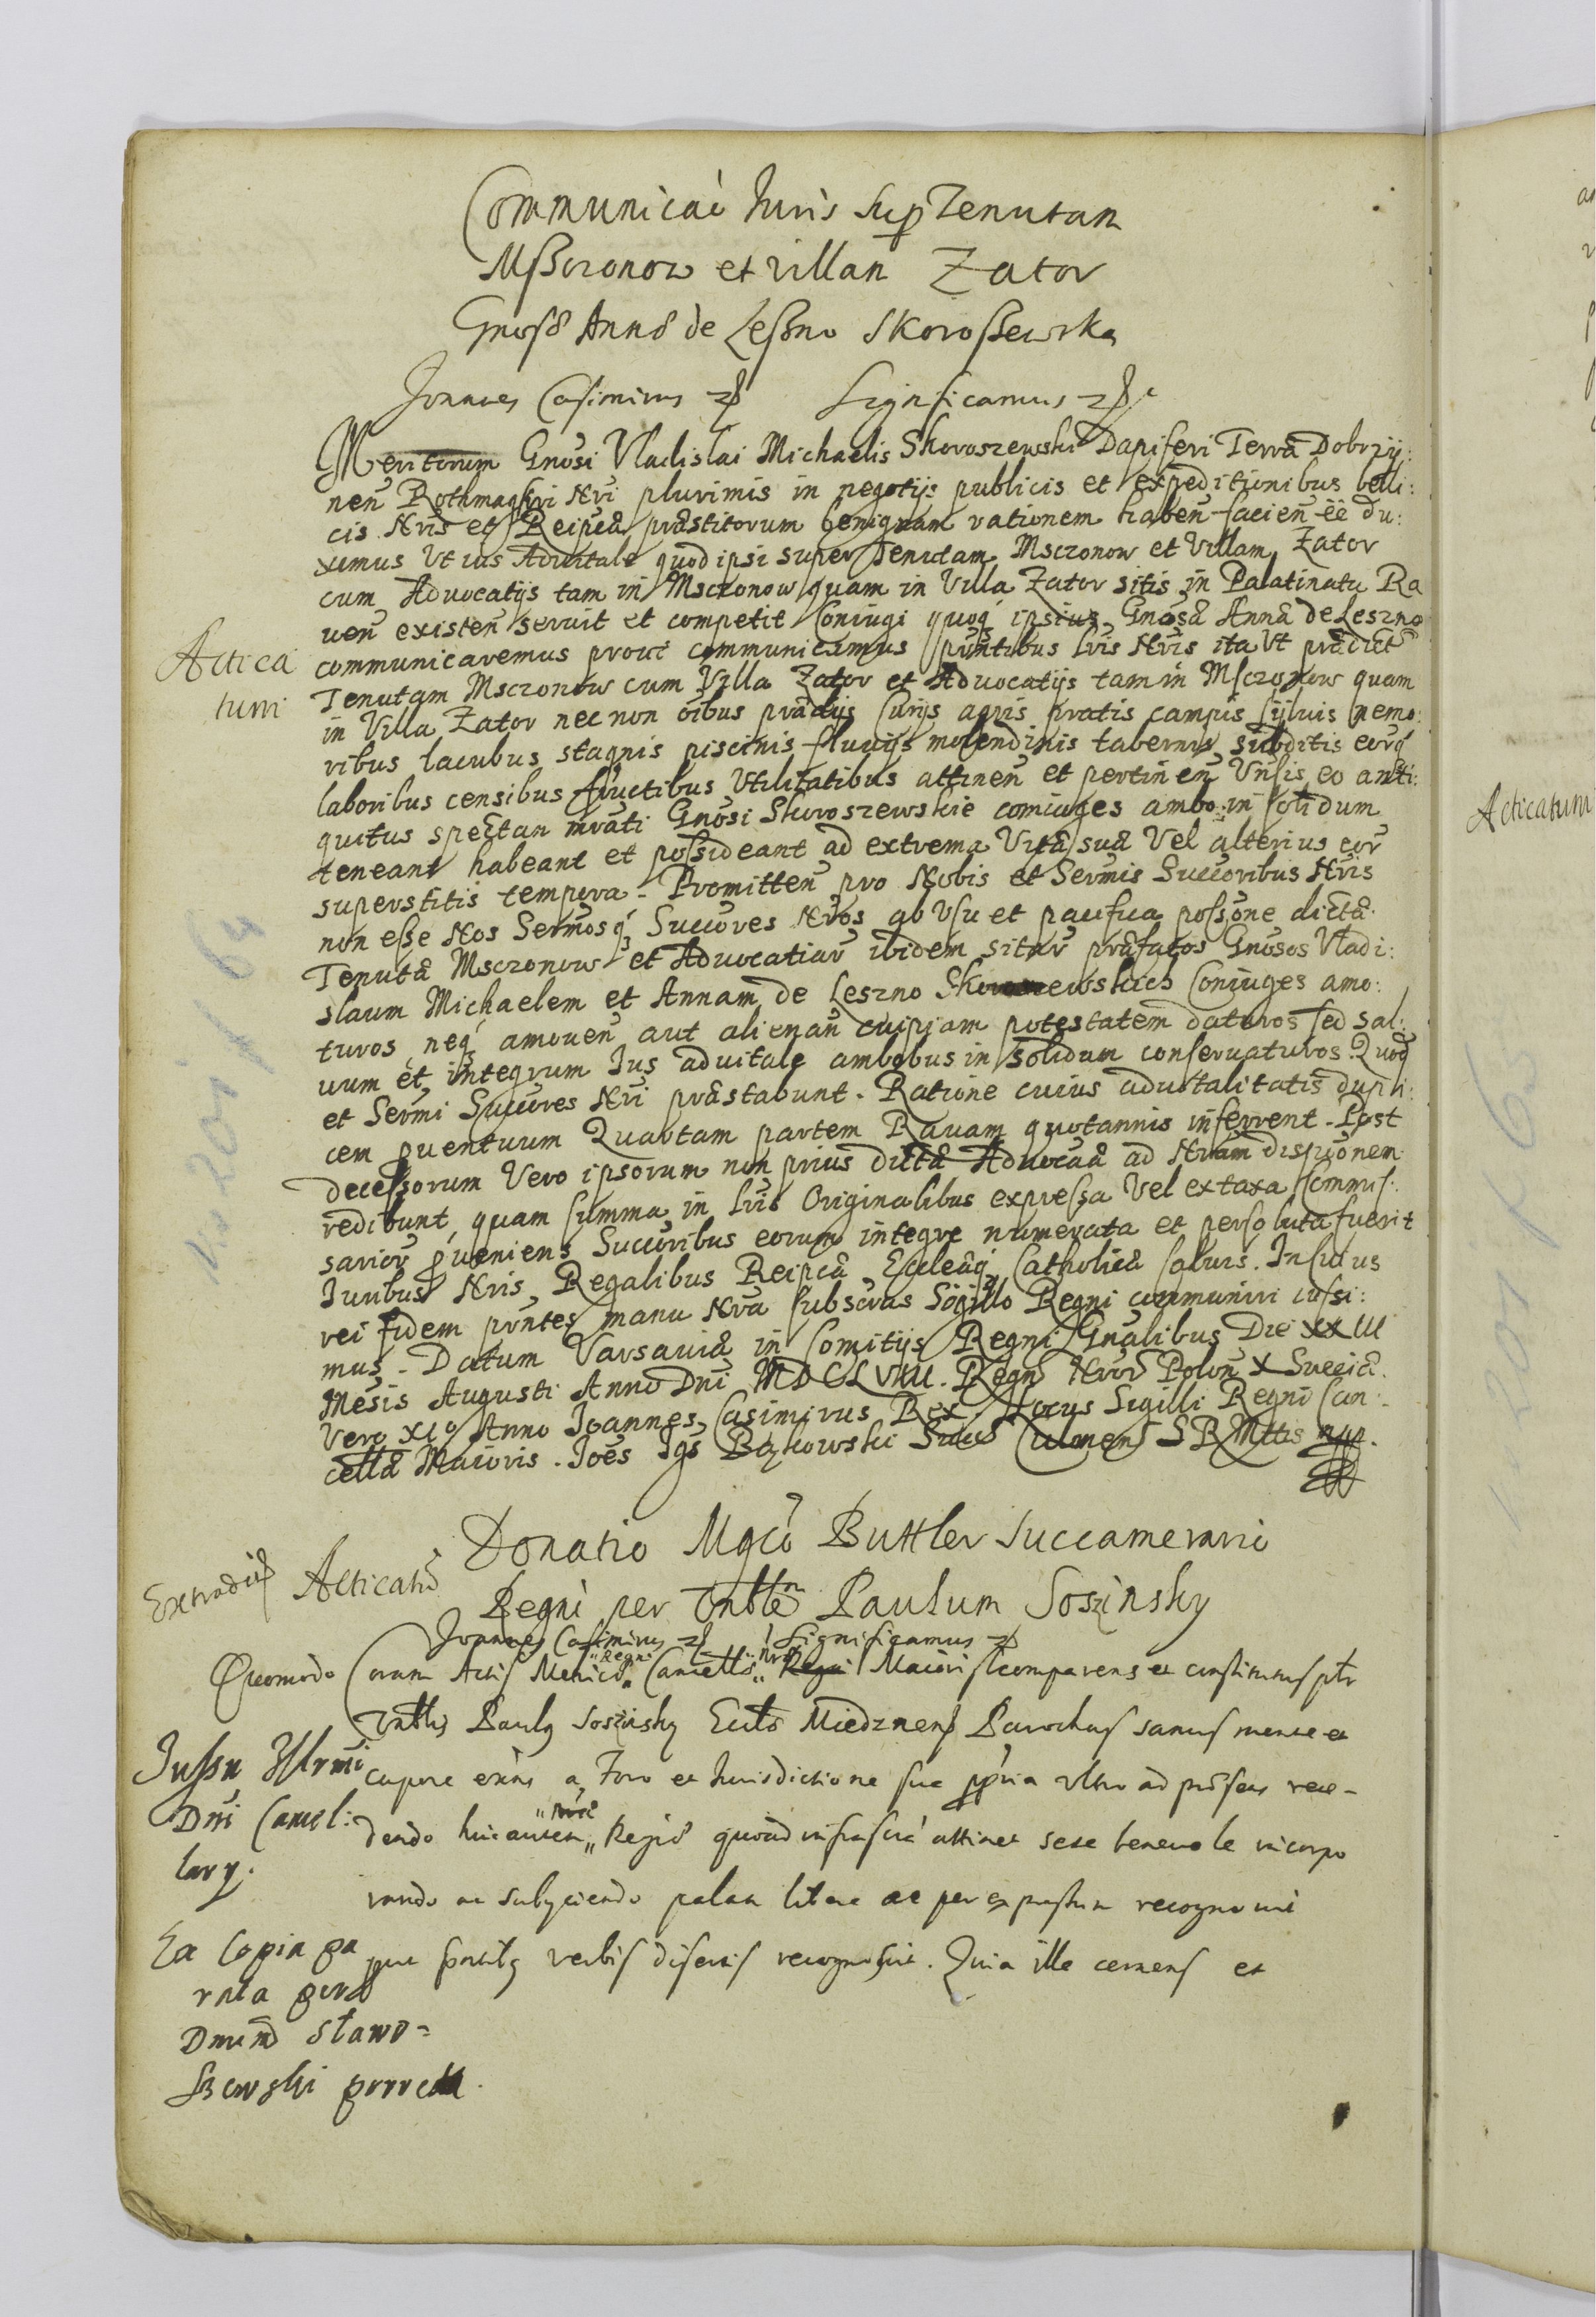 Communicaó Iuris sup Tenutam
Mszczonow et Villam Zator
Gnosæ Annæ de Leszno Skoroszewska
Joannes Casimirus Significamus
Meritorum Gnosi Vladislai Michaelis Skoroszewski Dapiferi Terræ Dobrzÿ:
nen Rothmagistri Nri plurimis in negotijs publicis et expeditionibus belli:
cis Nris et Reipcæ præstitorum benignam rationem haben facien eē du:
ximus Ut ius Advitale quod ipsi super Tenutam Msczonow et Villam Zator
cum Advocatijs tam in Msczonow quam in Villa Zator sitis in Palatinatu Ra
uen existen seruit et competit Coniugi quoq ipsius Gnosæ Annæ de Leszno
Actica
tum
communicaremus prout communicamus pntibus Lris Nris ita Ut prædict
Tenutam Msczonow cum Villa Zator et Advocatijs tam in Msczonow quam
in Villa Zator nec non oībus prædijs Curijs agris pratis campis sÿluis nemo:
ribus lacubus stagnis piscinis fluuijs molendinis tabernis subditis eorq
laboribus censibus fructibus Utilitatibus attinen et pertinen Unsis eo anti:
quitus spectan mrāti Gnosi Skoroszewskie coniuges ambo in solidum
teneant habeant et possideant ad extrema Vitæ suæ Vel alterius eor
superstitis tempora. Promitten pro Nobis et Sermis Succoribus Nris
non esse Nos Sermosq Succores Nros ab Usu et pacifica possone dictæ
Tenutæ Msczonow et Advocatiar ibidem sitar præfatos Gnosos Vladi:
slaum Michaelem et Annam de Leszno Skoroszewskich Coniuges amo:
turos neq amouen aut alienan cuipiam potestatem daturos sed sal:
uum et integrum Ius advitale ambobus in solidum conseruaturos. Quod
et Sermi Succores Nri præstabunt. Ratione cuius advitalitatis dupli:
cem puentuum Quartam partem Rauam quotannis inferrent. Post
decessorum Vero ipsorum non prius dictæ Advocaæ ad Nram dispōnem
redibunt quam summa in Lris Originalibus expressa Vel ex taxa Commis:
sarior proueniens Succoribus eorum integre numerata et persoluta fuerit
Iuribus Nris Regalibus Reipcæ Eccleæq Catholicæ saluis. In cuius
rei fidem pntes manu Nra subscras Sigillo Regni communiri iussi:
mus. Datum Varsauiæ in Comitijs Regni Gnalibus Die XXIII
Mēsis Augusti Anno Dni MDCLVIII. Regn Nror Polon X Sueciæ
Vero XIo Anno Joannes Casimirus Rex. Locus Sigilli Regni Can:
cellæ Maioris. Joēs Igs Bąkowski Succs Culmens SRMttis mpp.
Donatio Mgco Buttler Succamerario
Extradit Acticatū
Regni per Unblem Paulum Soszinsky
Joannes Casimirus Significamus
Quomodo Coram Actis Metrices Regni Cancelle Nræ Regni Maioris comparens et constitutus ptr
Unblis Paulus Soszinsky Eccle Miednens Parochus sanus mente et
Jussu Illrmi
Dni Cancel:
lary.
corpore exīns a Foro et Iurisdictione sua ppria ultro ad pnsens rece-
dendo huic autem Nræ Regiæ quoad infrascra attinet sese beneuole incorpo
rando ac subÿciendo palam libere ac per expressum recognouit
Ex Copia pa
rata per
Dnum Staro=
szewski correcta.
que pntibus verbis disertis recognoscit. Quia ille cernens et
Acticatum